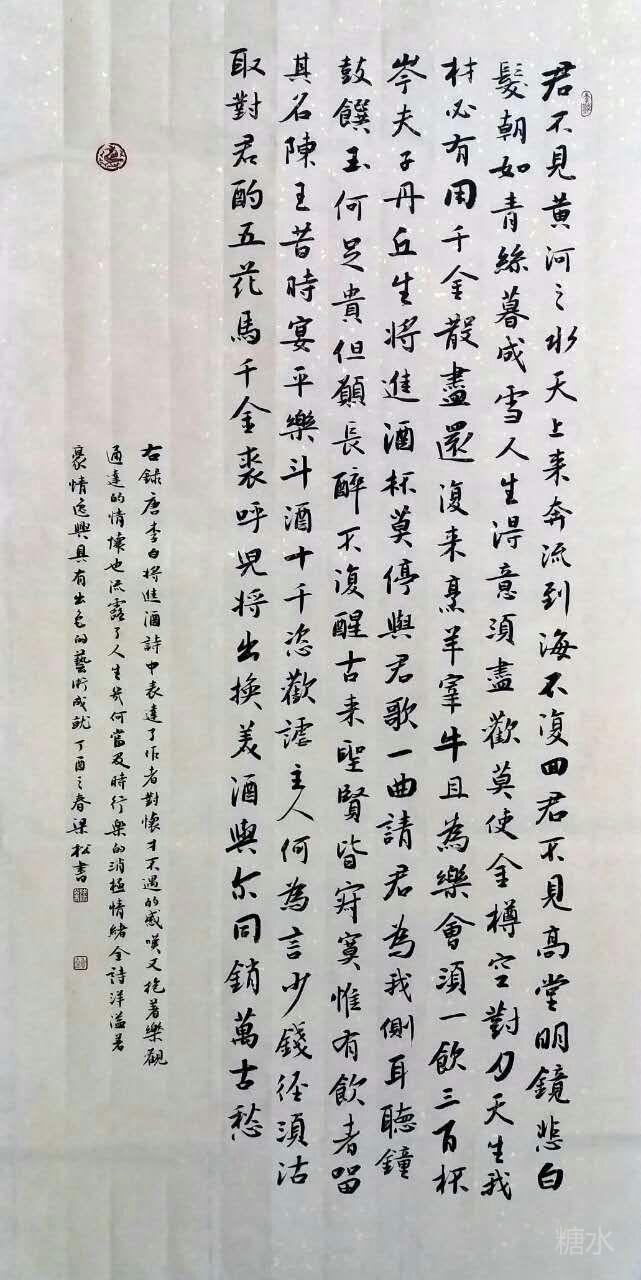 君不見黄河之水天上来奔流到海不復回君不見高堂明鏡悲白
髮朝如青絲暮成雪人生得意須盡歡莫使金樽空對月天生我
材必有用千金散盡還復来烹羊宰牛且為樂會須一飲三百杯
岑夫子丹丘生将進酒杯莫停與君歌一曲請君為我側耳聽鐘
鼓饌玉何足貴但願長醉不復醒古来聖賢皆寂寞惟有飲者留
其名陳王昔時宴平樂斗酒十千恣歡謔主人何為言少錢径須沽
取對君酌五花馬千金裘呼児将出換美酒與尔同銷萬古愁
右録唐李白将進酒詩中表達了作者對懷才不遇的感嘆又抱著樂觀
通達的情懷也流露了人生幾何當及時行樂的消極情緒全詩洋溢着
豪情逸興具有出色的藝術成就丁酉之春梁松書
糖水